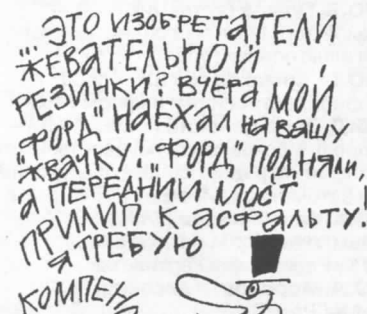 ... ЭТО ИЗОБРЕТАТЕЛИ
ЖЕВАТЕЛЬНОЙ
РЕЗИНКИ? ВЧЕРА МОЙ
"ФОРД" НАЕХАЛ НА ВАШУ
ЖВАЧКУ! "ФОРД" ПОДНЯЛИ,
А ПЕРЕДНИЙ МОСТ
ПРИЛИП К АСФАЛЬТУ.
Я ТРЕБУЮ
КОМПЕН